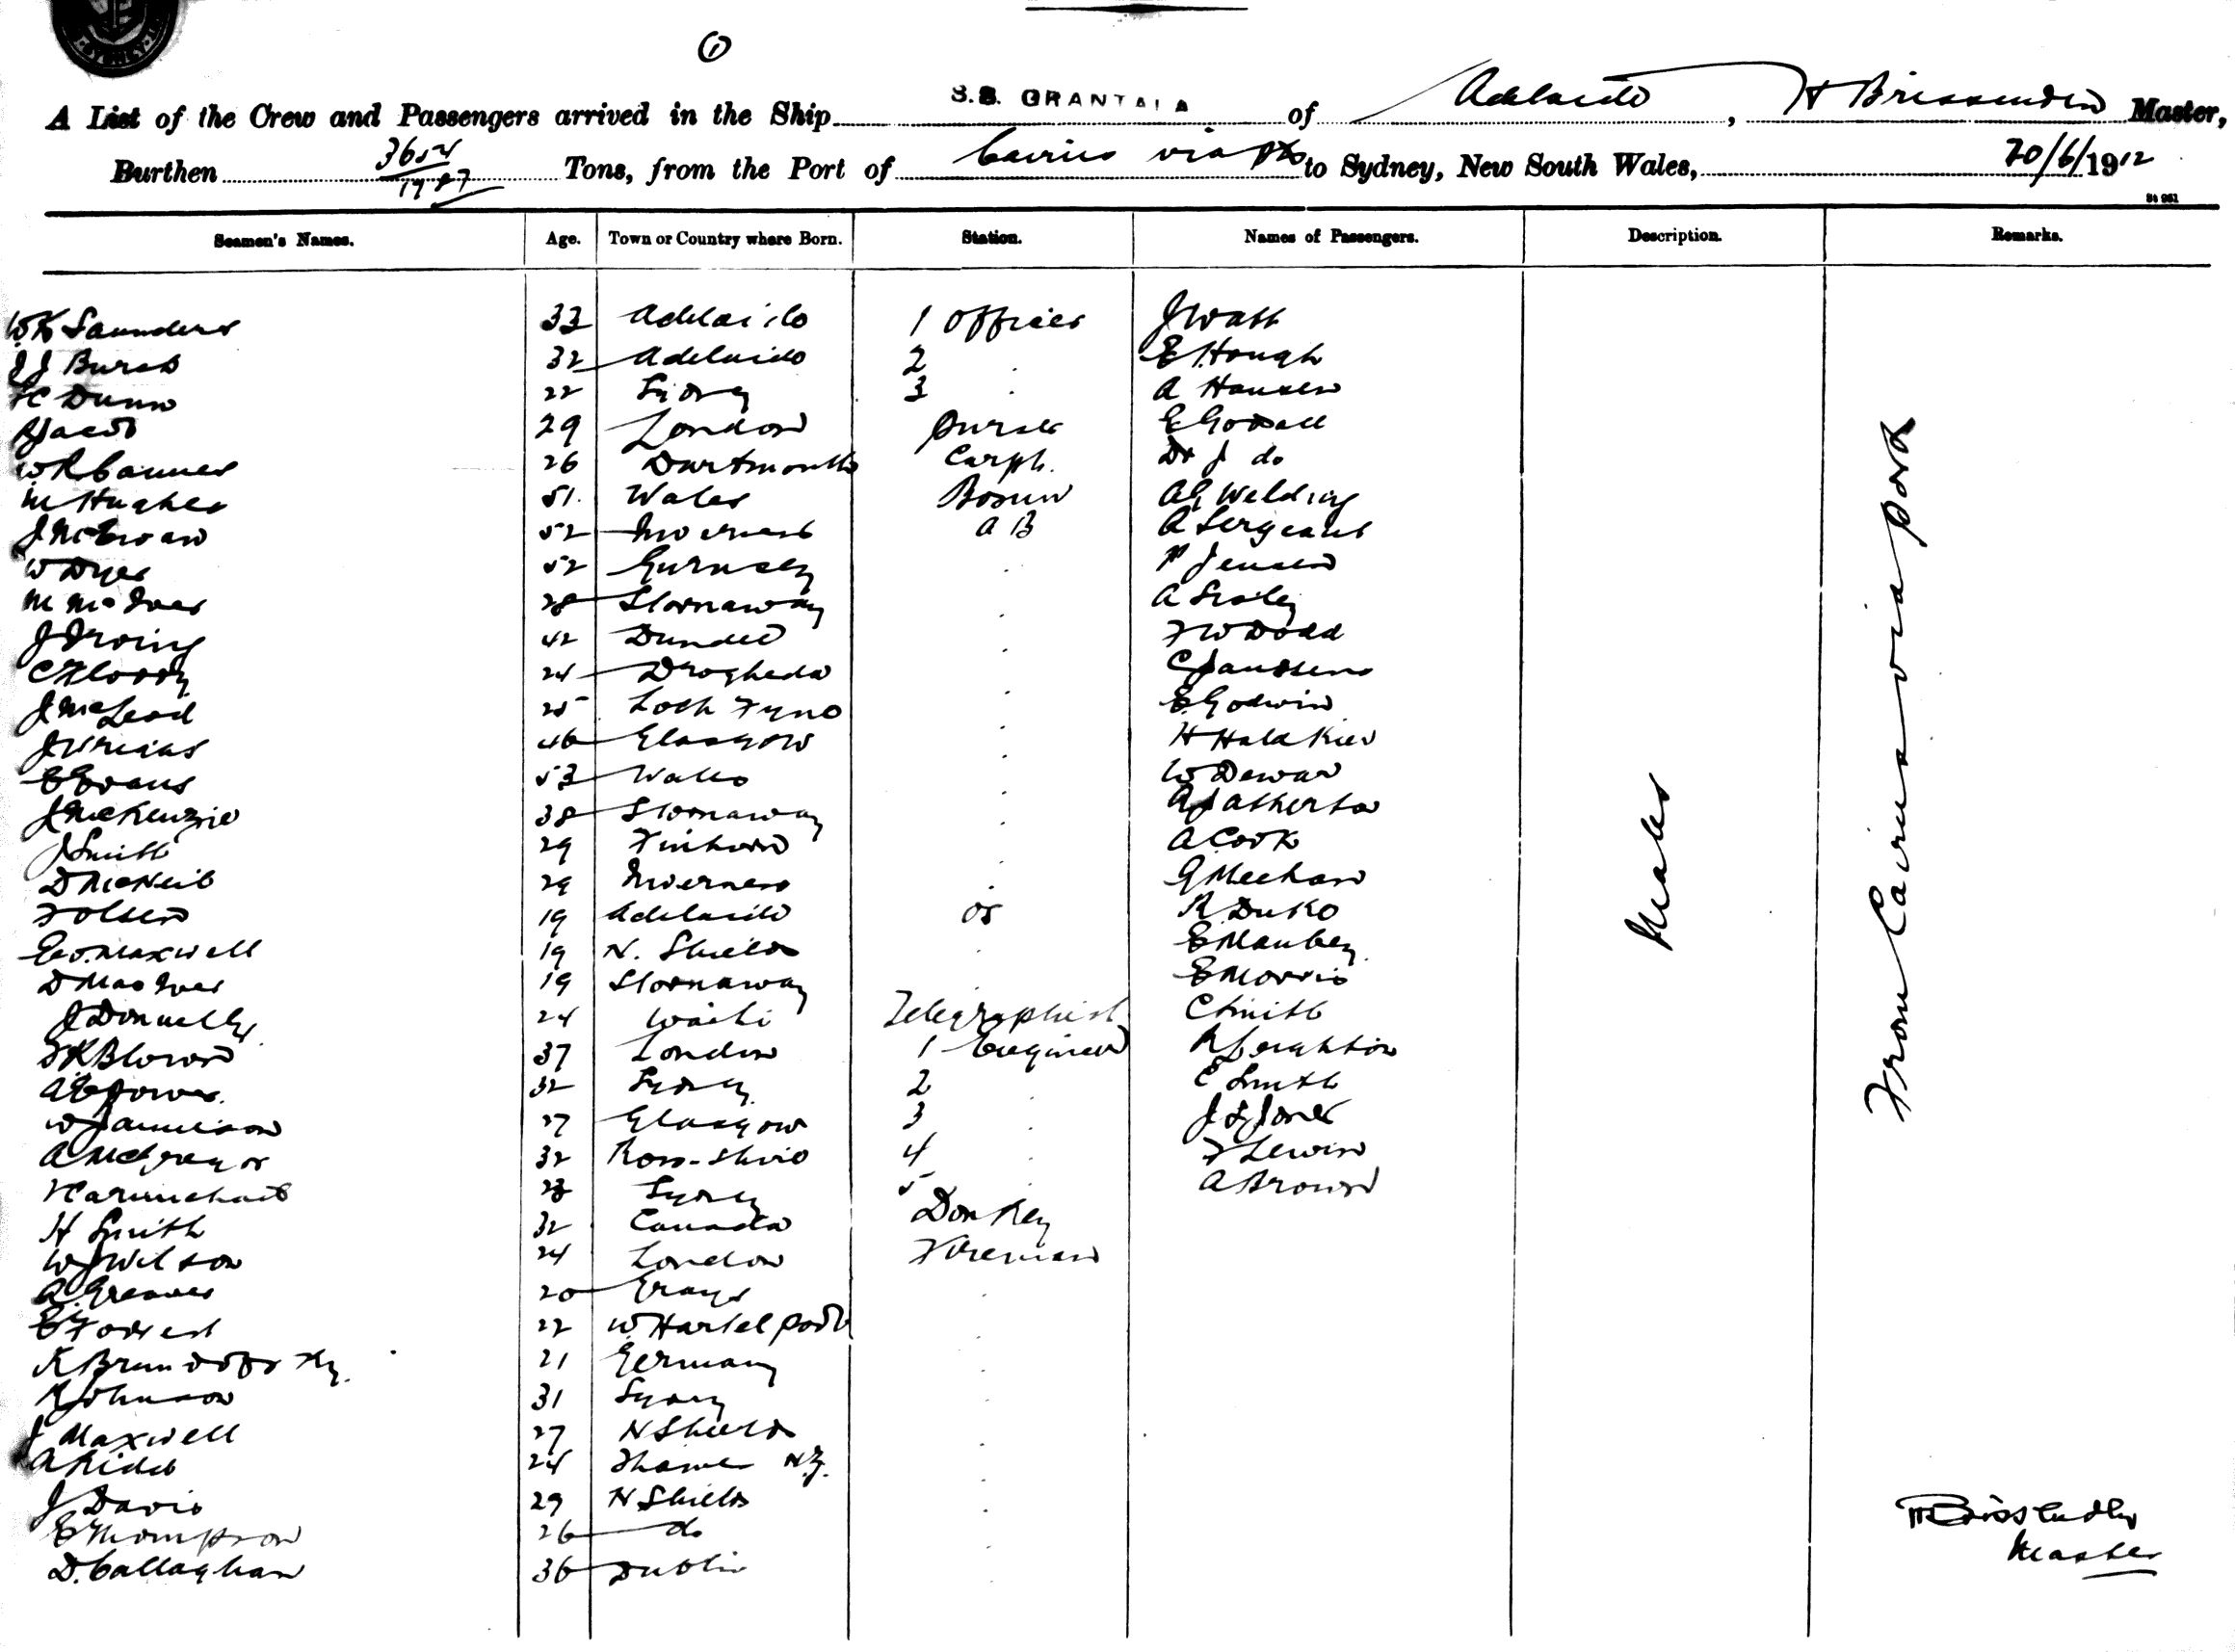 1
A List of the Crew and Passengers arrived in the Ship S.S. GRANTALA of Adelaide, H Brissenden Master,
Burthen 3654 Tons, from the Port of Cairns via to Sydney, New South Wales, 20/6/1912
Seamen's Names. Age. Town or Country where Born. Station. Names of Passengers. Description. Remarks.
Saunders 33 Adelaide 1 Officer J Watt
J J 32 Adelaide 2 E Hough
Dunn 22 Sydney 3 A Hansen
29 London Purser E
26 Dartmouth Carp. J do
M Hughes 51. Wales Bosun Welding
J McEwan 52 Inverness A B A Sergeant
W Dyer 52 Gurnsey Jensen
M McIver 28 Stornaway A
J Irving 42 Dundee F W Dodd
24 Drogheda C
J McLeod 25 Loch Fyne E. Godwin
46 Glasgow H
E Evans 53 Wales W Dewar
J McKenzie 38 Stornaway A J Atherton
J Smith 29 A Cook
D McNeil 29 Inverness G Meehan
F Olsen 19 Adelaide OS R Duke
Geo. Maxwell 19 N. Shields E
D MacIver 19 Stornaway E Morris
J Donnelly 24 Waihi Telegraphist C Smith
37 London 1 Engineer R Leighton
32 Sydney 2 E Smith
W Jamieson 27 Glasgow 3 J Jones
A McGregor 32 Ross-shire 4 F Lewin
Carmichael 28 Sydney 5 A Brown
H Smith 32 Canada Donkey
W J Wilson 24 London Fireman
A. Greaves 20 Grays
E Forrest 22 W. Hartelpool
K 21 Germany
R Johnson 31 Sydney
J Maxwell 27 N Shields
A 24 Thames N.Z.
J Davis 29 N Shields
E Thompson 26 do
D. Callaghan 36 Dublin
Males
From Cairns via ports
H Brissenden
Master